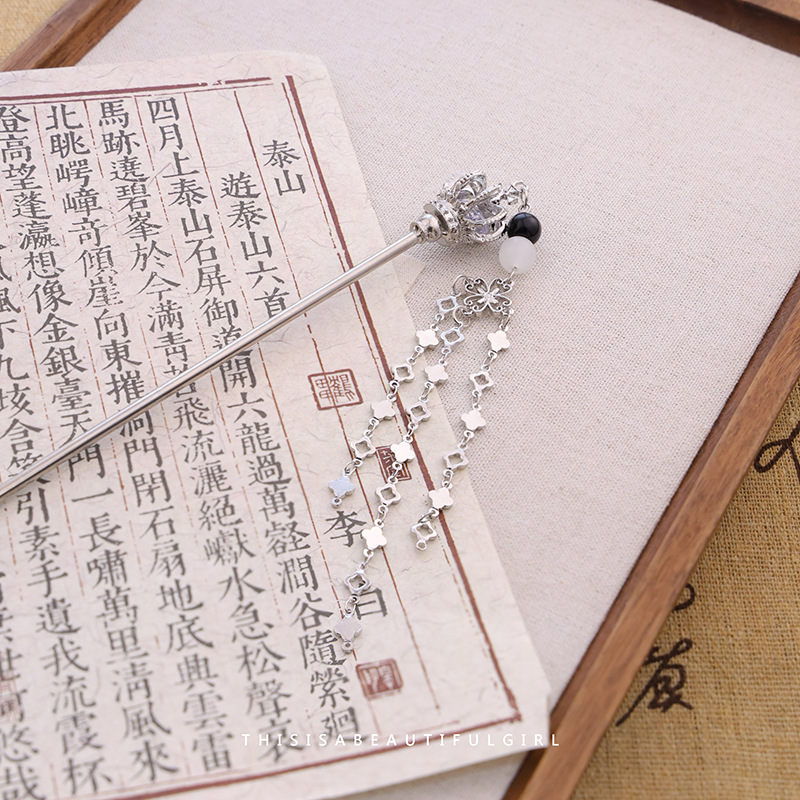 泰山
遊泰山六首
李白
四月上泰山石屏御道開六龍過萬壑澗谷隨縈迴
馬跡遶碧峯於今滿青苔飛流灑絕巘水急松聲哀
北眺崿嶂奇傾崖向東摧洞門閉石扇地底興雲雷
登高望蓬瀛想像金銀臺天門一長嘯萬里清風來
下九垓含笑引素手遺我流霞杯
世何悠哉
THISISABEAUTIFULGIRL